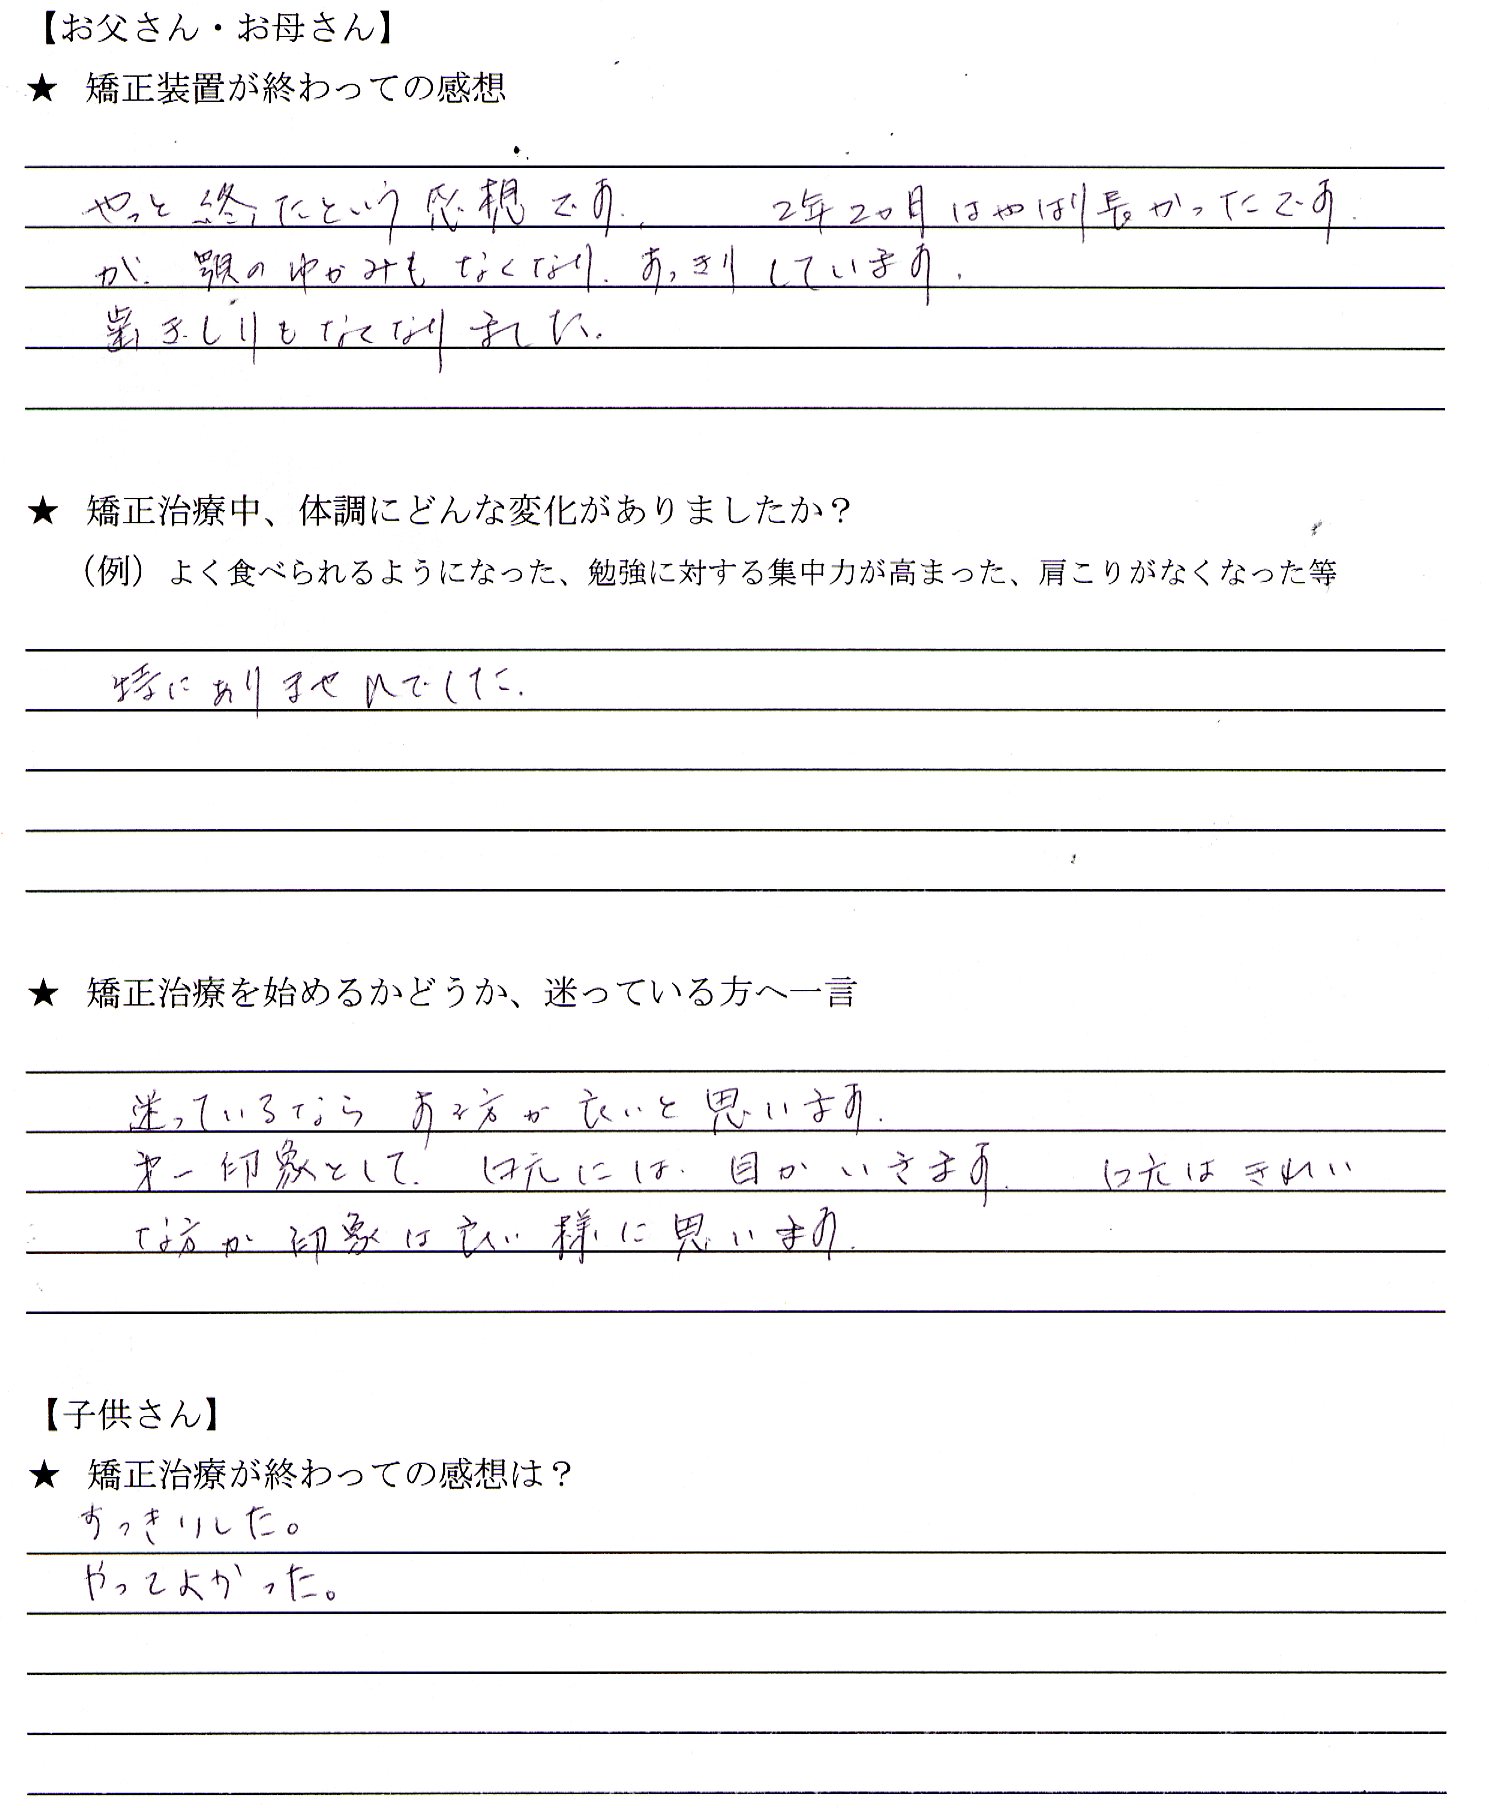 【お父さん・お母さん】
★ 矯正装置が終わっての感想
やっと終ったという感想です。 2年2ヵ月はやはり長かったです
が、顎のゆがみもなくなり、すっきりしています。
歯ぎしりもなくなりました。
★ 矯正治療中、体調にどんな変化がありましたか？
（例）よく食べられるようになった、勉強に対する集中力が高まった、肩こりがなくなった等
特にありませんでした。
★ 矯正治療を始めるかどうか、迷っている方へ一言
迷っているなら する方が良いと思います。
第一印象として、口元には、目がいきます。 口元はきれい
な方が印象は良い様に思います。
【子供さん】
★ 矯正治療が終わっての感想は？
すっきりした。
やってよかった。